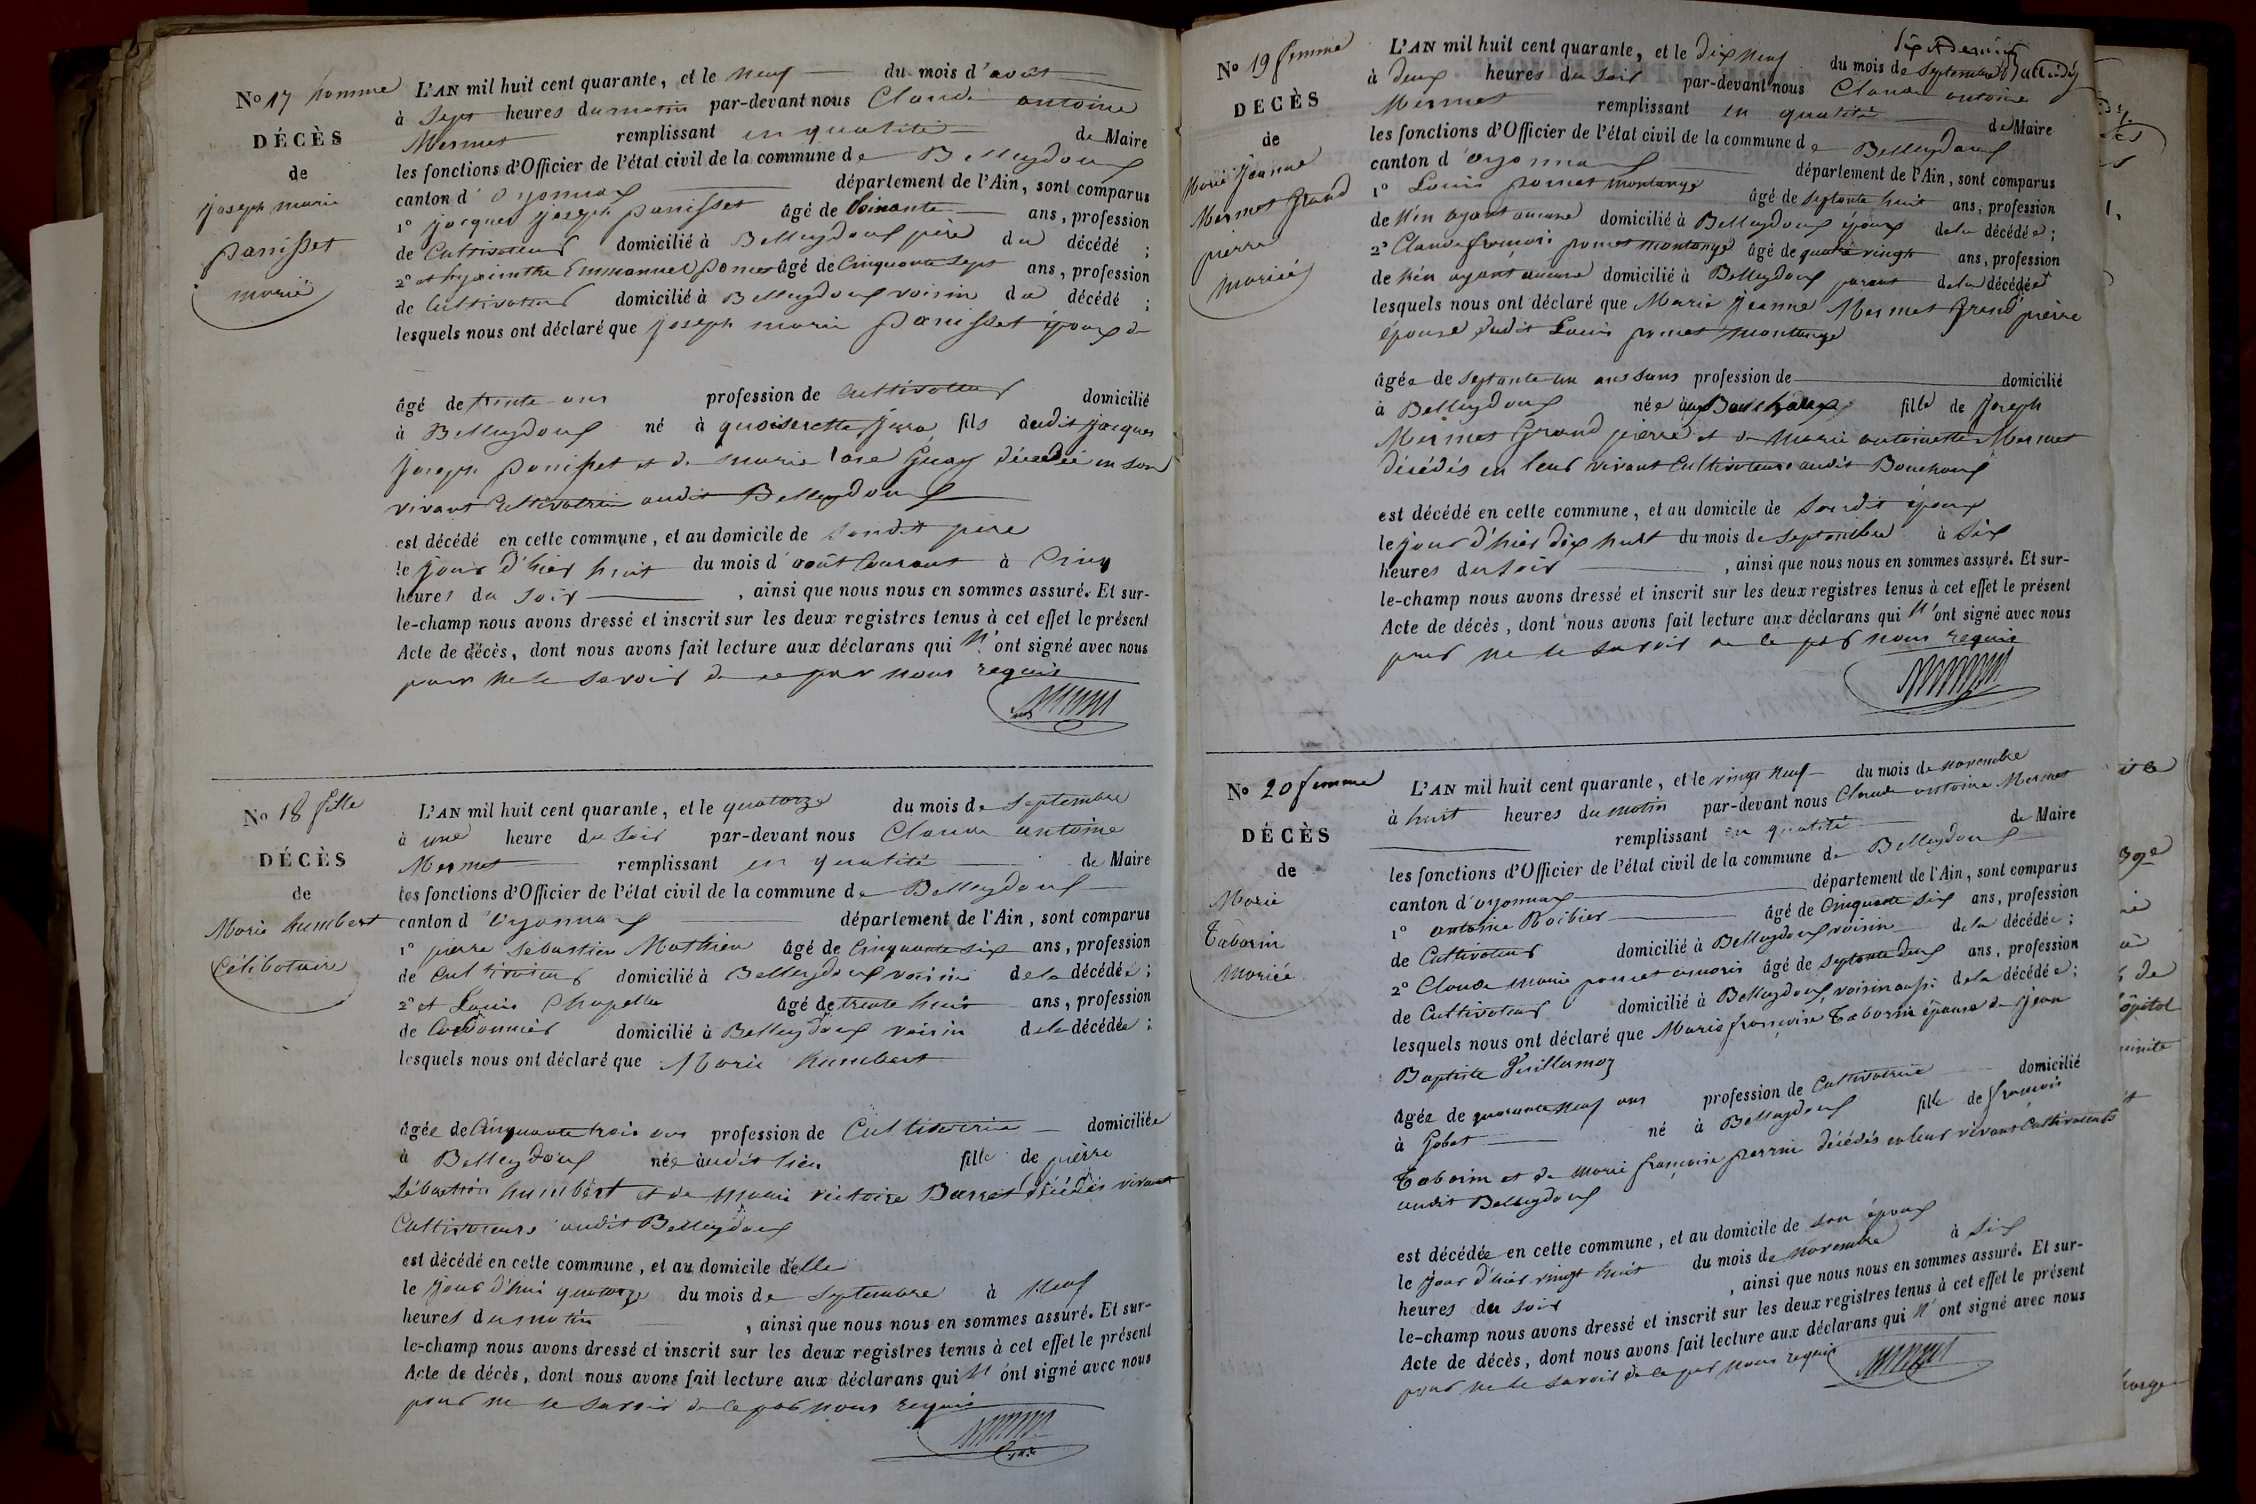 No 17 homme
DÉCÈS
de
joseph marie
panisset
marié
L'AN mil huit cent quarante, et le neuf du mois d'août
à Sept heures du matin par-devant nous Claude antoine
Mermet remplissant en qualité de Maire
les fonctions d'Officier de l'état civil de la commune de Belleydoux
canton d'oyonnax département de l'Ain, sont comparus
1° jacques joseph panisset âgé de Soixante ans, profession
de Cultivateur domicilié à Belleydoux père du décédé ;
2° et hyacinthe Emmanuel poncet âgé de Cinquante Sept ans, profession
de Cultivateur domicilié à Belleydoux voisin du décédé ;
lesquels nous ont déclaré que joseph marie panisset époux de
âgé de trente ans profession de Cultivateur domicilié
à Belleydoux né à quoiserette jura fils dudit jacques
joseph panisset et de marie rose Guay décédée en son
vivant Cultivatrice audit Belleydoux
est décédé en cette commune, et au domicile de Sondit père
le jour d'hier huit du mois d'août Courant à Cinq
heures du Soir , ainsi que nous nous en sommes assuré. Et sur-
le-champ nous avons dressé et inscrit sur les deux registres tenus à cet effet le présent
Acte de décès, dont nous avons fait lecture aux déclarans qui N'ont signé avec nous
pour ne le savoir de ce par nous requis
No 18 fille
DÉCÈS
de
Marie humbert
Célibataire
L'AN mil huit cent quarante, et le quatorze du mois de Septembre
à une heure du Soir par-devant nous Claude antoine
Mermet remplissant en qualité de Maire
les fonctions d'Officier de l'état civil de la commune de Belleydoux
canton d'oyonnax département de l'Ain, sont comparus
1° pierre Sébastien Mathieu âgé de Cinquante Six ans, profession
de Cultivateur domicilié à Belleydoux voisin de la décédée ;
2° et Louis Chapelle âgé de trente huit ans, profession
de Cordonnier domicilié à Belleydoux voisin de la décédée ;
lesquels nous ont déclaré que Marie humbert
âgée de Cinquante trois ans profession de Cultivatrice domiciliée
à Belleydoux née audit lieu fille de pierre
Sébastien humbert et de marie victoire Barret décédés vivant
Cultivateurs audit Belleydoux
est décédé en cette commune, et au domicile d'elle
le jour d'hui quatorze du mois de Septembre à Neuf
heures du matin , ainsi que nous nous en sommes assuré. Et sur-
le-champ nous avons dressé et inscrit sur les deux registres tenus à cet effet le présent
Acte de décès, dont nous avons fait lecture aux déclarans qui N'ont signé avec nous
pour ne le savoir de ce par nous requis
No 19 femme
DECÈS
de
Marie jeanne
Mermet Grand
pierre
mariée
L'AN mil huit cent quarante, et le dix Neuf du mois de Septembre
à deux heures du soir par-devant nous Claude antoine
Mermet remplissant en qualité de Maire
les fonctions d'Officier de l'état civil de la commune de Belleydoux
canton d'oyonnax département de l'Ain, sont comparus
1° Louis poncet montange âgé de septante huit ans, profession
de N'en ayant aucune domicilié à Belleydoux époux de la décédée ;
2° Claude françois poncet montange âgé de quatre vingts ans, profession
de N'en ayant aucune domicilié à Belleydoux parent de la décédée
lesquels nous ont déclaré que Marie jeanne Mermet Grand pierre
épouse dudit Louis poncet montange
âgée de septante un ans sans profession de domicilié
à Belleydoux née aux Bouchoux fille de joseph
Mermet Grand pierre et de marie antoinette Mermet
décédés en leur vivant Cultivateurs audit Bouchoux
est décédé en cette commune, et au domicile de Sondit époux
le jour d'hier dix huit du mois de Septembre à Six
heures du soir , ainsi que nous nous en sommes assuré. Et sur-
le-champ nous avons dressé et inscrit sur les deux registres tenus à cet effet le présent
Acte de décès, dont nous avons fait lecture aux déclarans qui N'ont signé avec nous
pour ne le savoir de ce par nous requis
No 20 femme
DÉCÈS
de
Marie
Taborin
Mariée
L'AN mil huit cent quarante, et le vingt Neuf du mois de novembre
à huit heures du matin par-devant nous Claude antoine Mermet
remplissant en qualité de Maire
les fonctions d'Officier de l'état civil de la commune de Belleydoux
canton d'oyonnax département de l'Ain, sont comparus
1° antoine Roibier âgé de Cinquante Six ans, profession
de Cultivateur domicilié à Belleydoux voisin de la décédée ;
2° Claude marie poncet âgé de septante deux ans, profession
de Cultivateur domicilié à Belleydoux, voisin aussi de la décédée ;
lesquels nous ont déclaré que Marie françoise Taborin épouse de jean
Baptiste Vuillermoz
âgée de quarante neuf ans profession de Cultivatrice domicilié
à Gobet né à Belleydoux fille de françois
Taborin et de marie françoise perrin décédés en leur vivant Cultivateurs
audit Belleydoux
est décédée en cette commune, et au domicile de son époux
le jour d'hier vingt huit du mois de novembre à Six
heures du soir , ainsi que nous nous en sommes assuré. Et sur-
le-champ nous avons dressé et inscrit sur les deux registres tenus à cet effet le présent
Acte de décès, dont nous avons fait lecture aux déclarans qui N'ont signé avec nous
pour ne le savoir de ce par nous requis